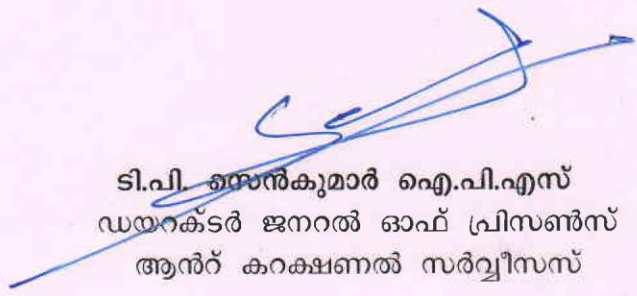 ടി.പി. സെൻകുമാർ ഐ.പി.എസ്
ഡയറക്ടർ ജനറൽ ഓഫ് പ്രിസൺസ്
ആൻറ് കറക്ഷണൽ സർവ്വീസസ്